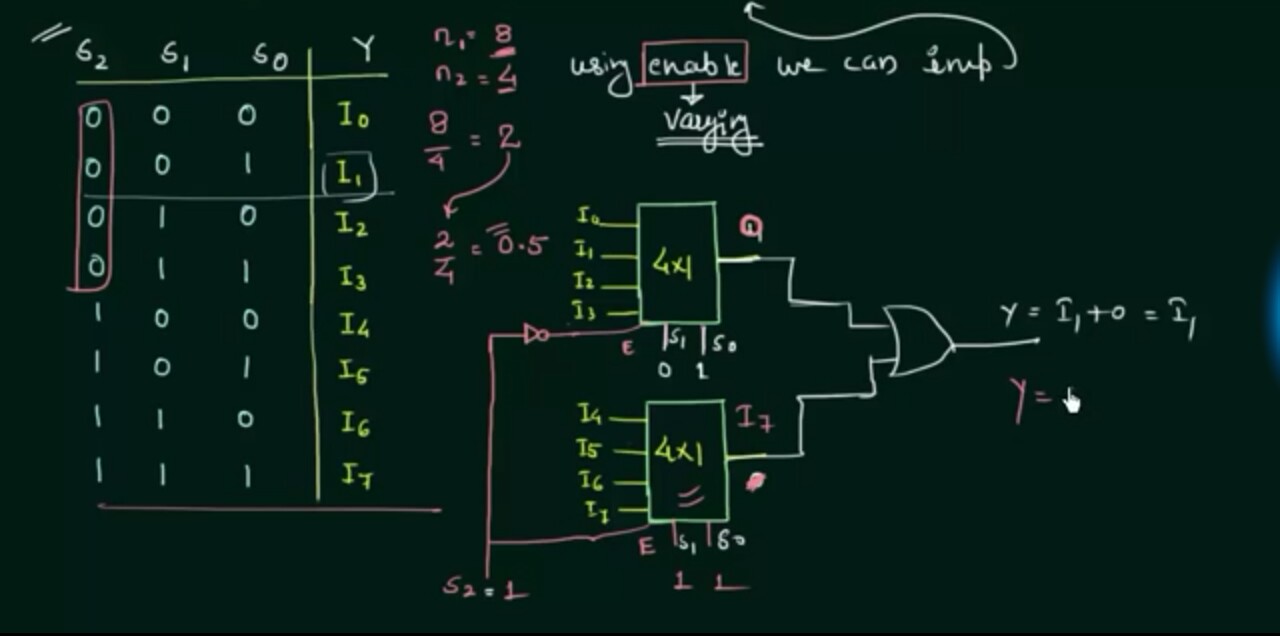 S2 S1 S0 Y
0 0 0 I0
0 0 1 I1
0 1 0 I2
0 1 1 I3
1 0 0 I4
1 0 1 I5
1 1 0 I6
1 1 1 I7
n1 = 8
n2 = 4
8/4 = 2
2/4 = 0.5
using enable we can imp
Varying
I0
I1
I2
I3
4x1
E S1 S0
0 1
I4
I5
I6
I7
4x1
I7
E S1 S0
1 1
S2 = 1
Y = I1 + 0 = I1
Y =